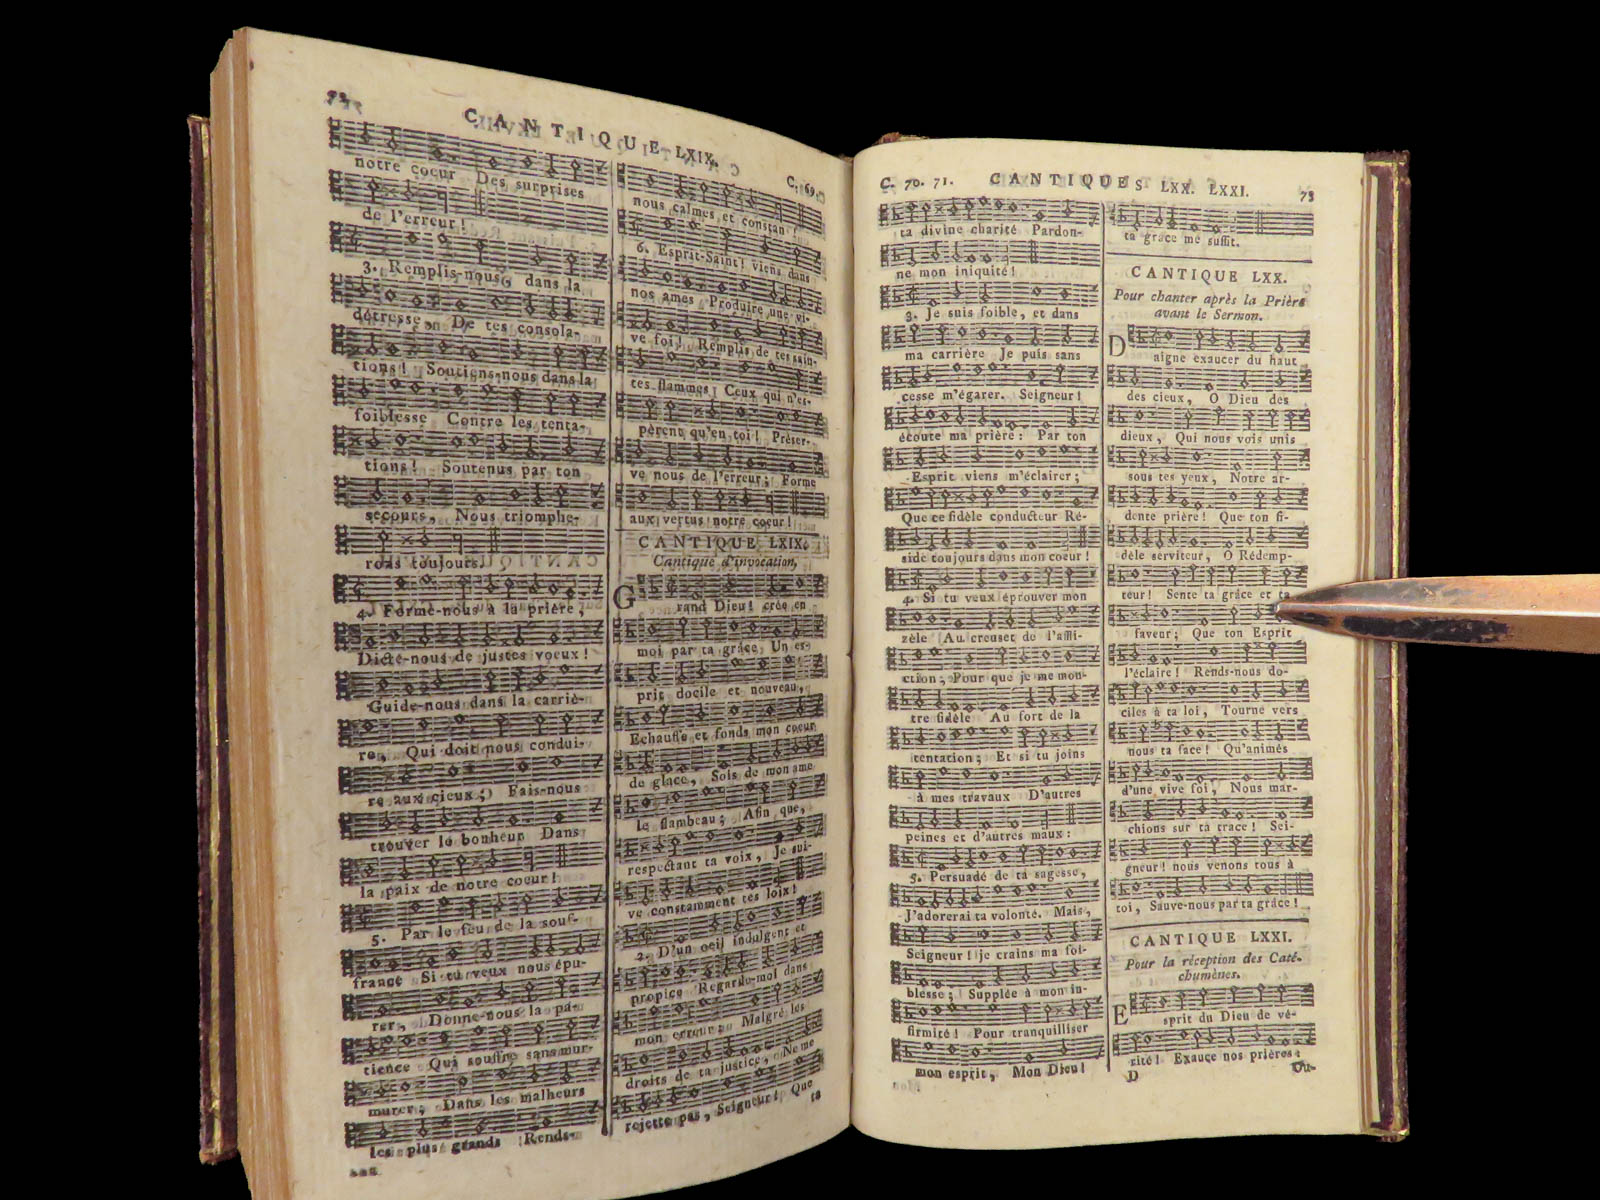 CANTIQUE LXIX.
C. 69.
notre coeur Des surprises
de l'erreur!
3. Remplis-nous, dans la
détresse, De tes consola-
tions! Soutiens-nous dans la
foiblesse Contre les tenta-
tions! Soutenus par ton
secours, Nous triomphe-
rons toujours.
4. Forme-nous à la prière;
Dicte-nous de justes voeux!
Guide-nous dans la carriè-
re, Qui doit nous condui-
re aux cieux; Fais-nous
trouver le bonheur Dans
la paix de notre coeur!
5. Par le feu de la souf-
france Si tu veux nous épu-
rer, Donne-nous la pa-
tience Qui souffre sans mur-
murer; Dans les malheurs
les plus grands Rends-
nous calmes et constans!
6. Esprit-Saint! viens dans
nos ames Produire une vi-
ve foi! Remplis de tes sain-
tes flammes Ceux qui n'es-
pèrent qu'en toi! Préser-
ve nous de l'erreur; Forme
aux vertus notre coeur!
CANTIQUE LXIX.
Cantique d'invocation,
Grand Dieu! crée en
moi par ta grâce Un es-
prit docile et nouveau,
Echauffe et fonds mon coeur
de glace, Sois de mon ame
le flambeau; Afin que,
respectant ta voix, Je sui-
ve constamment tes loix!
2. D'un oeil indulgent et
propice Regarde-moi dans
mon erreur; Malgré les
droits de ta justice, Ne me
rejette pas, Seigneur! Que
ta
C. 70. 71. CANTIQUES LXX. LXXI. 73
ta divine charité Pardon-
ne mon iniquité!
3. Je suis foible, et dans
ma carrière Je puis sans
cesse m'égarer. Seigneur!
écoute ma prière: Par ton
Esprit viens m'éclairer;
Que ce fidèle conducteur Ré-
side toujours dans mon coeur!
4. Si tu veux éprouver mon
zèle Au creuset de l'affli-
ction, Pour que je me mon-
tre fidèle Au fort de la
tentation; Et si tu joins
à mes travaux D'autres
peines et d'autres maux:
5. Persuadé de ta sagesse,
J'adorerai ta volonté. Mais,
Seigneur! je crains ma foi-
blesse; Supplée à mon in-
firmité! Pour tranquilliser
mon esprit, Mon Dieu!
ta grâce me suffit.
CANTIQUE LXX.
Pour chanter après la Prière
avant le Sermon.
Daigne exaucer du haut
des cieux, O Dieu des
dieux, Qui nous vois unis
sous tes yeux, Notre ar-
dente prière! Que ton fi-
dèle serviteur, O Rédemp-
teur! Sente ta grâce et ta
faveur; Que ton Esprit
l'éclaire! Rends-nous do-
ciles à ta loi, Tourne vers
nous ta face! Qu'animés
d'une vive foi, Nous mar-
chions sur ta trace! Sei-
gneur! nous venons tous à
toi, Sauve-nous par ta grâce!
CANTIQUE LXXI.
Pour la réception des Caté-
chumènes.
Esprit du Dieu de vé-
rité! Exauce nos prières:
D